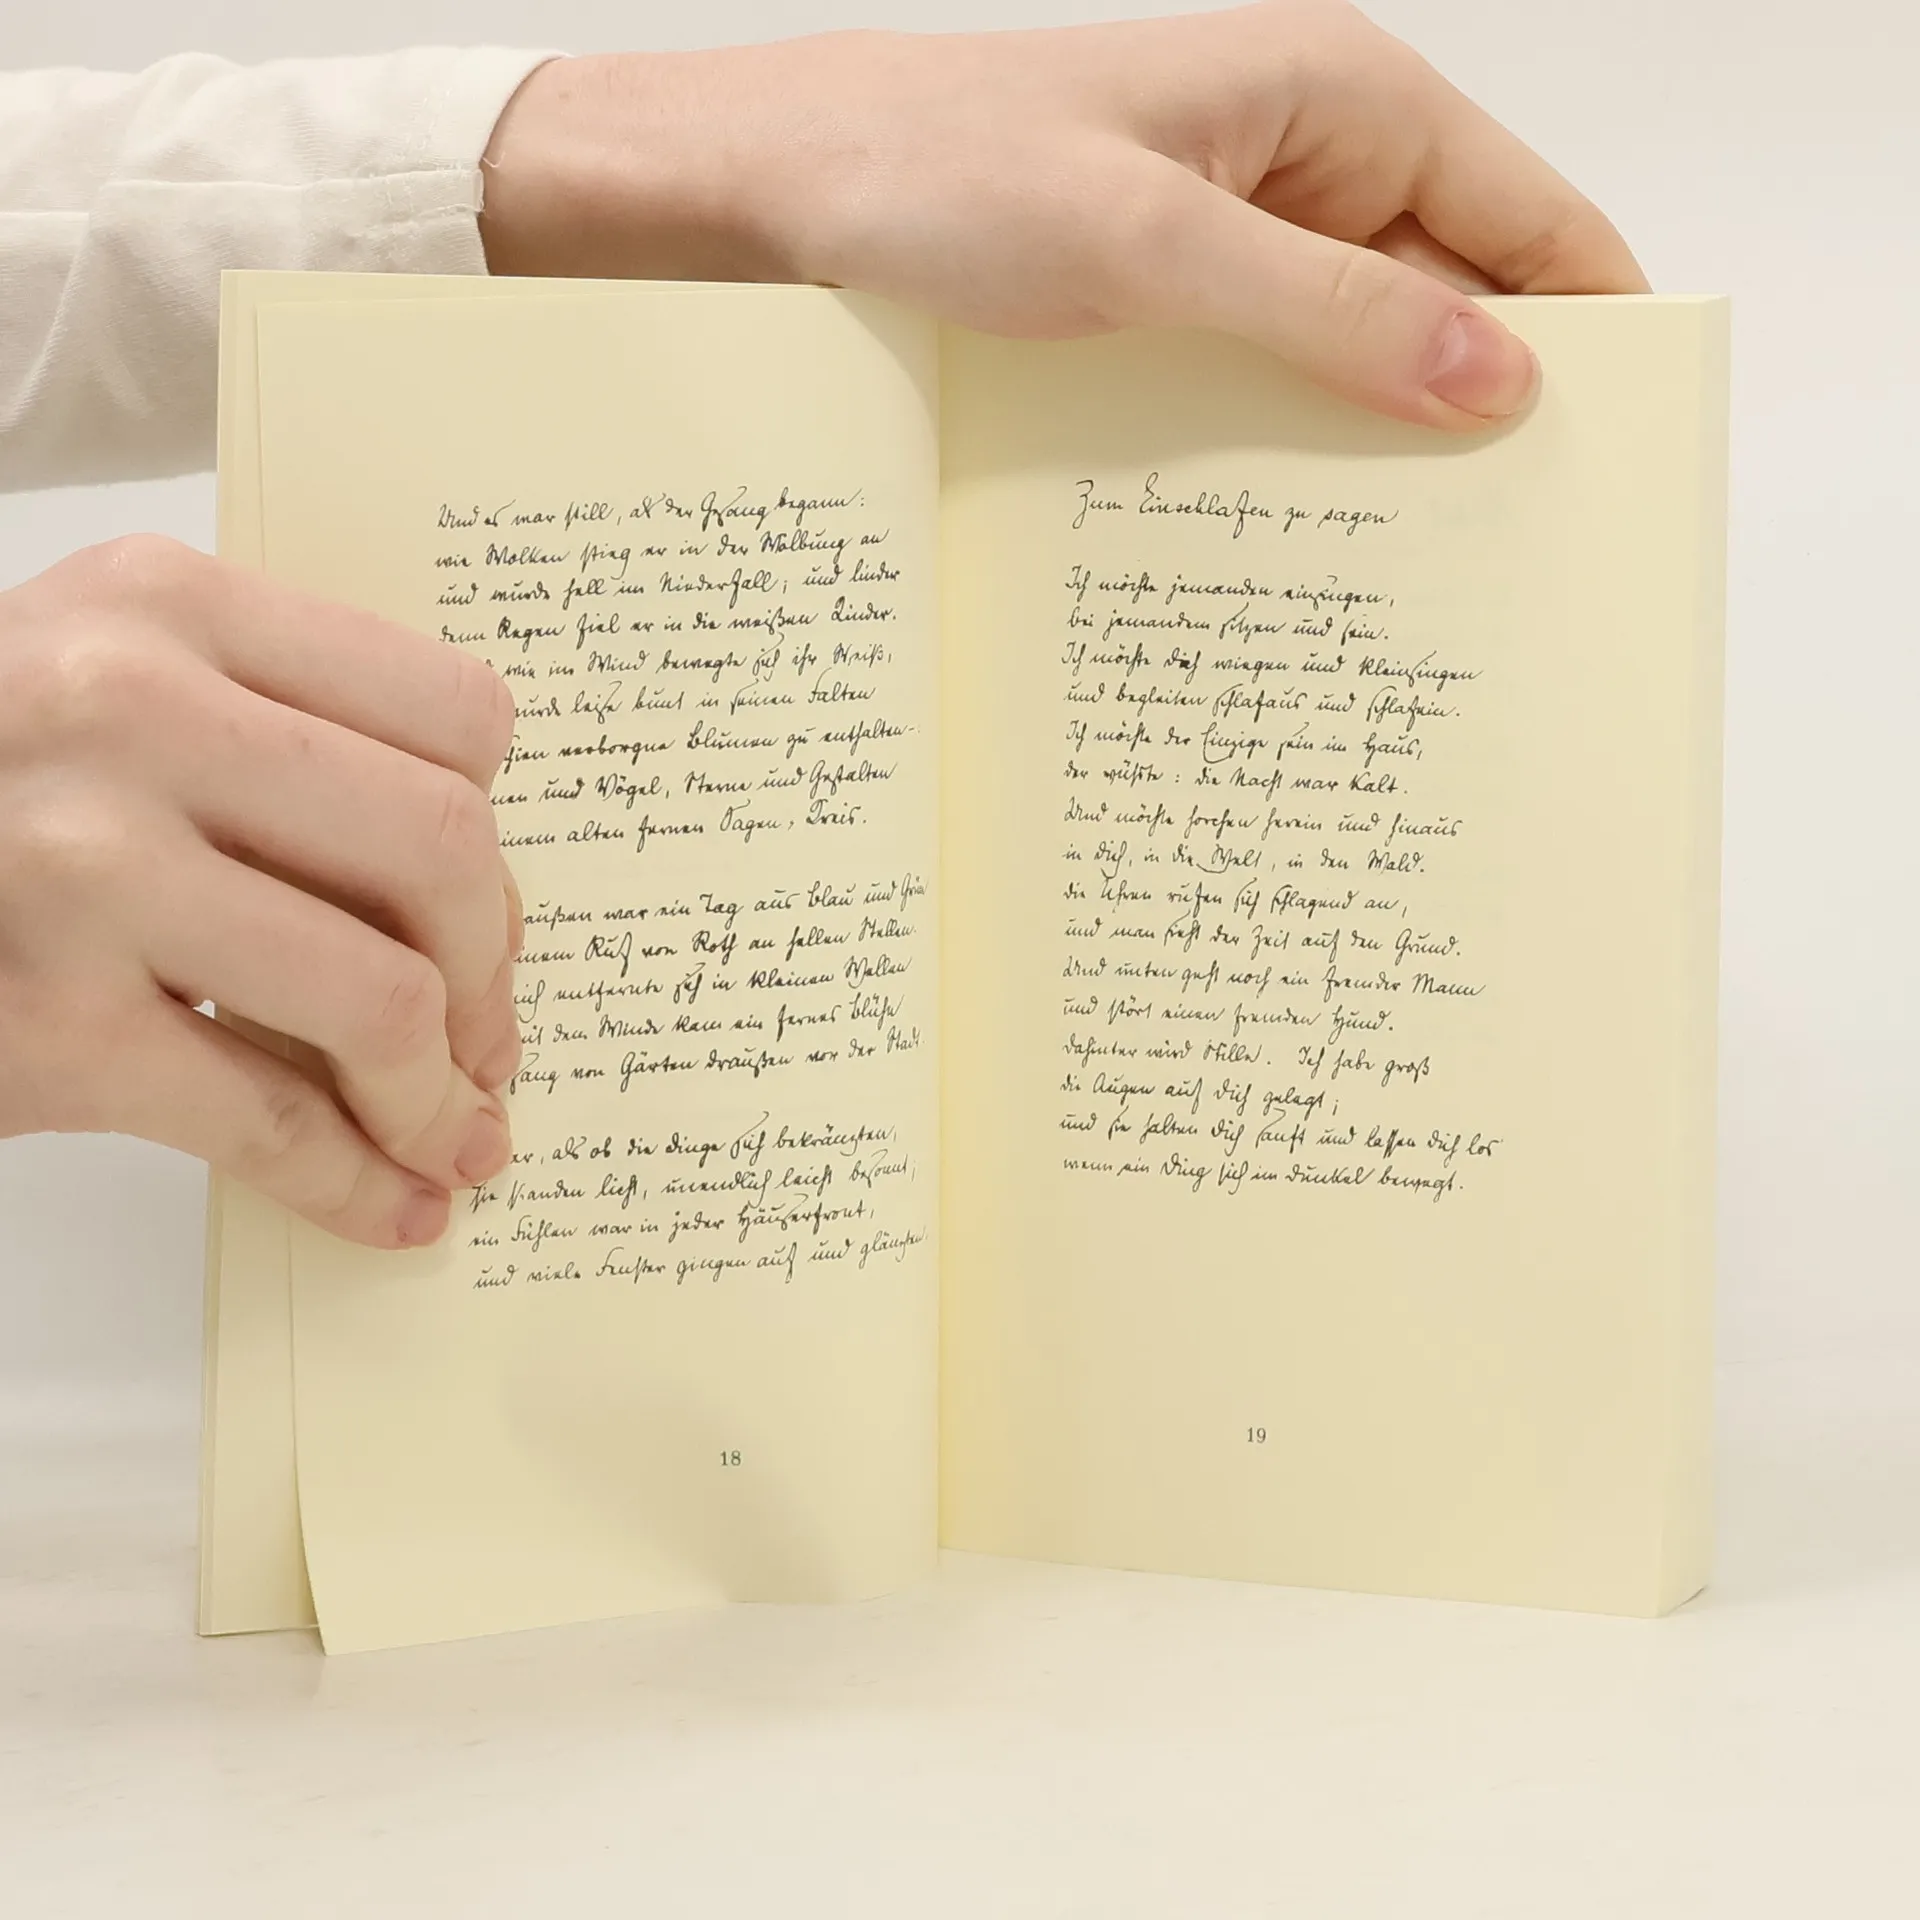 Und es war still, als der Gesang begann:
wie Wolken stieg er in der Wölbung an
und wurde hell im Niederfall; und linder
denn Regen fiel er in die weißen Kinder.
wie im Wind bewegte sich ihr Weiß,
wurde leise bunt in seinen Falten
schien verborgne Blumen zu enthalten-:
nen und Vögel, Sterne und Gestalten
einem alten fernen Sagen, Kreis.
außen war ein Tag aus Blau und Grün
einem Ruf von Roth an hellen Stellen.
ich entfernte sich in kleinen Wellen
mit dem Winde kam ein fernes Blühn
sang von Gärten draußen vor der Stadt.
er, als ob die Dinge sich bekränzten,
sie standen licht, unendlich leicht besonnt;
ein Fühlen war in jeder Häuserfront,
und viele Fenster gingen auf und glänzten.
18
Zum Einschlafen zu sagen
Ich möchte jemanden einsingen,
bei jemandem sitzen und sein.
Ich möchte dich wiegen und kleinsingen
und begleiten schlafaus und schlafein.
Ich möchte der Einzige sein im Haus,
der wüßte: die Nacht war kalt.
Und möchte horchen herein und hinaus
in dich, in die Welt, in den Wald.
die Uhren rufen sich schlagend an,
und man sieht der Zeit auf den Grund.
Und unten geht noch ein fremder Mann
und stört einen fremden Hund.
dahinter wird Stille. Ich habe groß
die Augen auf dich gelegt;
und sie halten dich sanft und lassen dich los
wenn ein Ding sich im Dunkel bewegt.
19